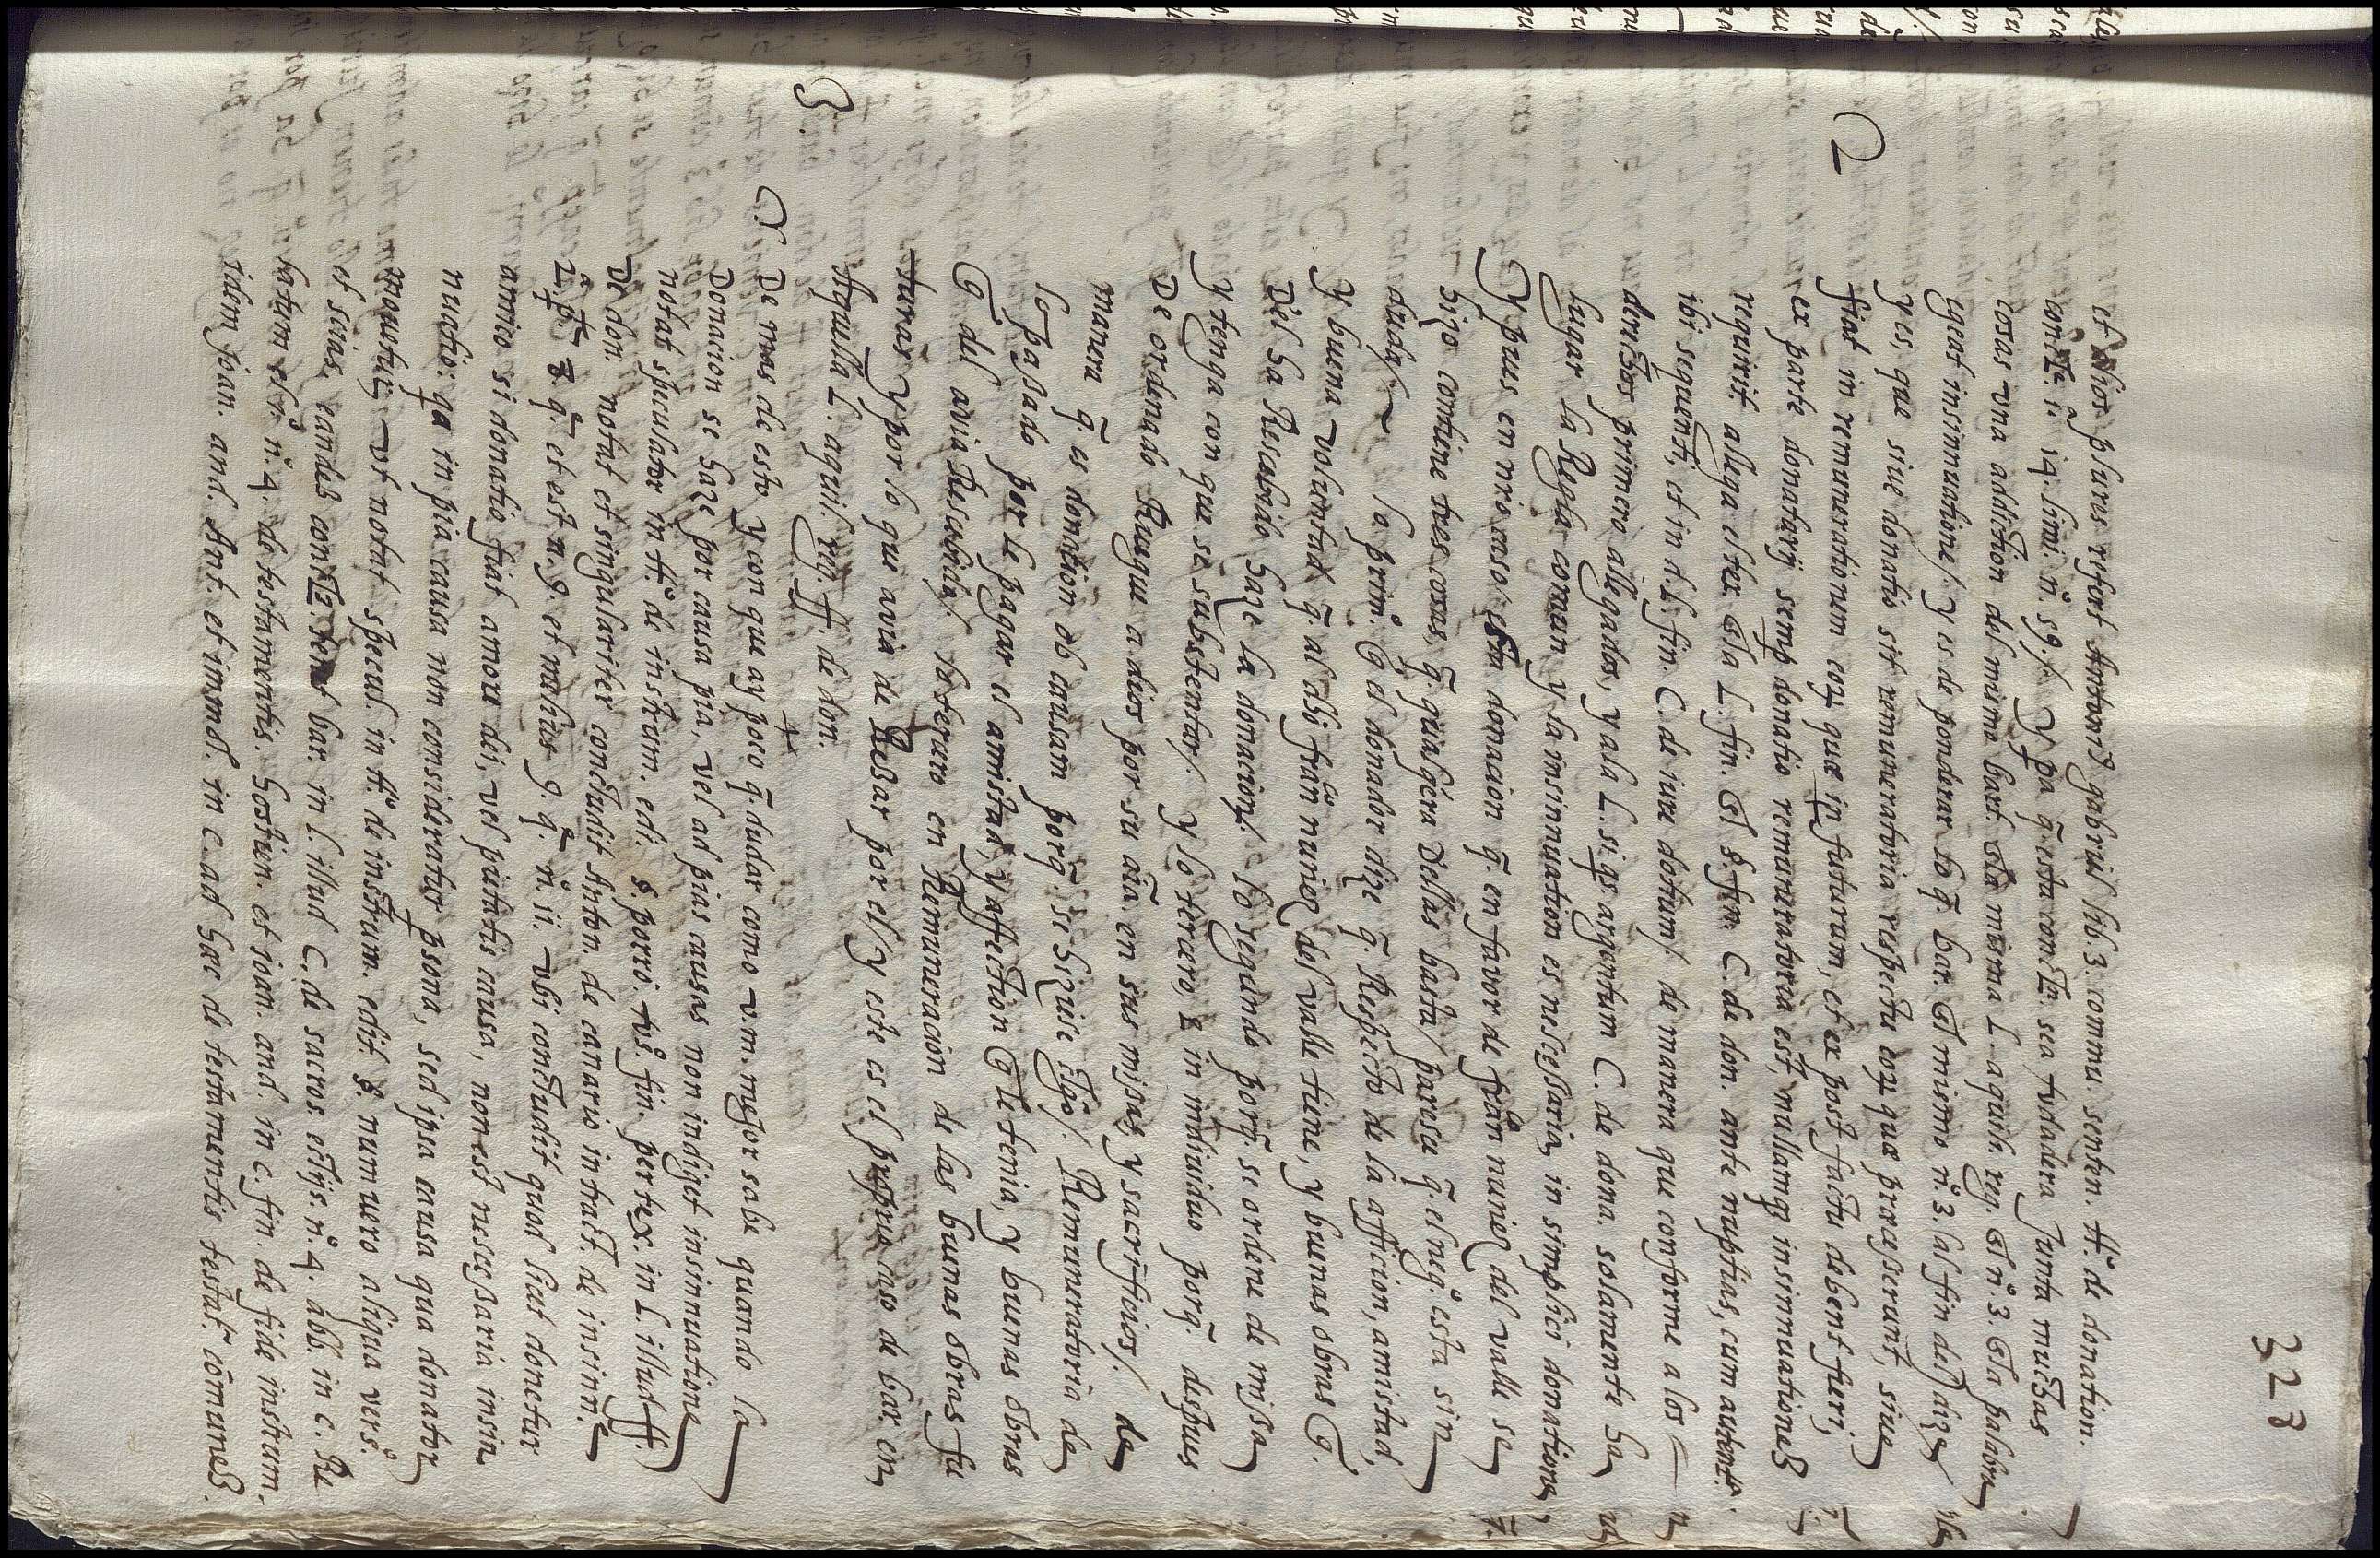 323
et alios plures refert Antoniȝ gabriel lib. 3. commu. senten. tt.º de donation.
conȝ. i. iq. limi. nº. 59./. y pª q̃. esta conȝ. sea verdadera Junta muchas
cosas una addition del mismo bart. ẽla misma L. aquil. reg. ẽl nº. 3. ẽla palabra
egeat insinuatione/. y es de ponderar lo q̃ bar. ẽl mismo nº. 3. al fin del dize
y es, que siue donatio sit remuneratoria respectu eoꝝ quæ præcesserunt, siue
fiat in remunerationem eoꝝ quæ in futurum, et ex post facto debent fieri,
ex parte donatarij semp donatio remuneratoria est, nullamqȝ insinuationeȝ
requirit. allega el tex. ẽla L. fin. ẽl §. fin. C. de don. ante nuptias, cum autent.
ibi sequenti, et in d. L. fin. C. de iure dotium/. de manera que conforme a los
derechos primero allegados, y ala L. si qs. argentum C. de dona. solamente ha
lugar la Regla comun y la insinuation es nescessaria, in simplici donatione
2 Y pues en nr̃o caso/ esta donacion q̃. en favor de frãnº nuñez del valle se
hizo contiene tres cosas, q̃. qualqera dellas basta/ paresce q̃. el negº. esta sin
duda/. ~ la primª. ẽ el donador dize q̃. Respecto de la afficion, amistad,
y buena voluntad q̃. al dhõ frãnᶜº nuñez del valle tiene, y buenas obras ẽ.
del ha Rescebido haze la donacion/. lo segundo porq̃. se ordene de missa
y tenga con que se substentar/. y lo tercero, e in indiuiduo porq̃. despues
de ordenado Ruegue a dios por su aĩa en sus missas, y sacrificios/. de
manera q̃ es donation ob causam porq̃. se hiziese clgº/. Remuneratoria de
lo pasado por le pagar el amistad, y affection ẽ le tenia, y buenas obras
ẽ del avia Rescebido/. lo futuro en Remuneracion de las buenas obras fu
turas y por lo que avia de Rezar por el/ y este es el propuo caso de bar. en
Aquella L. aquil. reg. ff. de don.
3. De mas de esto y con que ay poco q̃. dudar como v.m. mejor sabe quando la
Donacion se haze por causa pia, vel ad pias causas non indiget insinuatione
notat speculator in tt.º de instrum. edi. §. porro. vsº. fin. per tex. in L. illud ff.
De don. notat et singulariter concludit Anton. de canario in tract. de insinu.
2ª. pt. 8. q̃. et est n. 9. et melius 9. q̃. nº. ii. vbi concludit quod licet donetur
amico si donatio fiat amore dei, vel pietatis causa, non est nescessaria insi
nuatio: qa in pia causa non consideratur psona, sed ipsa causa qua donator
mouetur, vt notat specul. in tt.º de instrum. edit. §. nunc vero aliqua versº.
et scias, eandeȝ conȝ. tenet bar. in l. illud C. de sacros eclijs. nº. 4. abb. in c. Re
latum el iº. nº. 4. de testamentis. hostien. et joan. and. in c. fin. de fide instrum.
idem joan. and. Ant. et immol. in c. ad hæc de testamentis testat. cõmuneȝ.